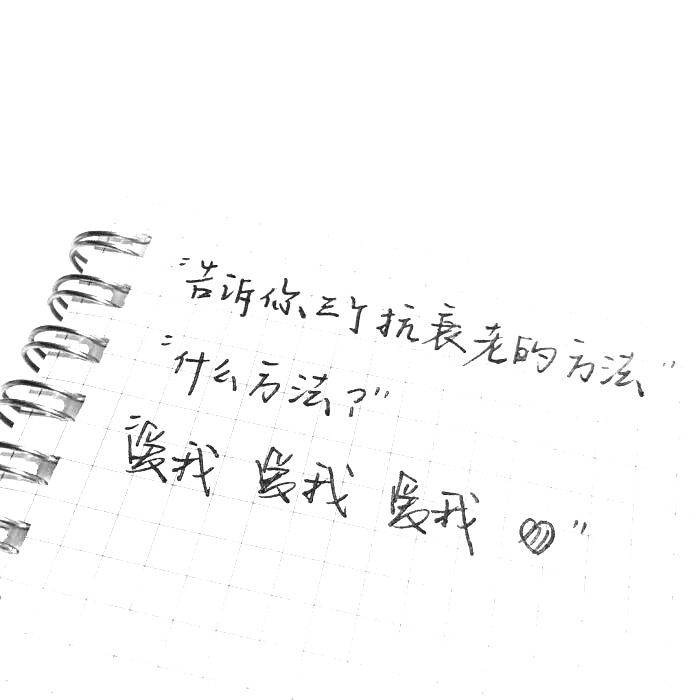 “告诉你三个抗衰老的方法”
“什么方法？”
“爱我 爱我 爱我 ♡”